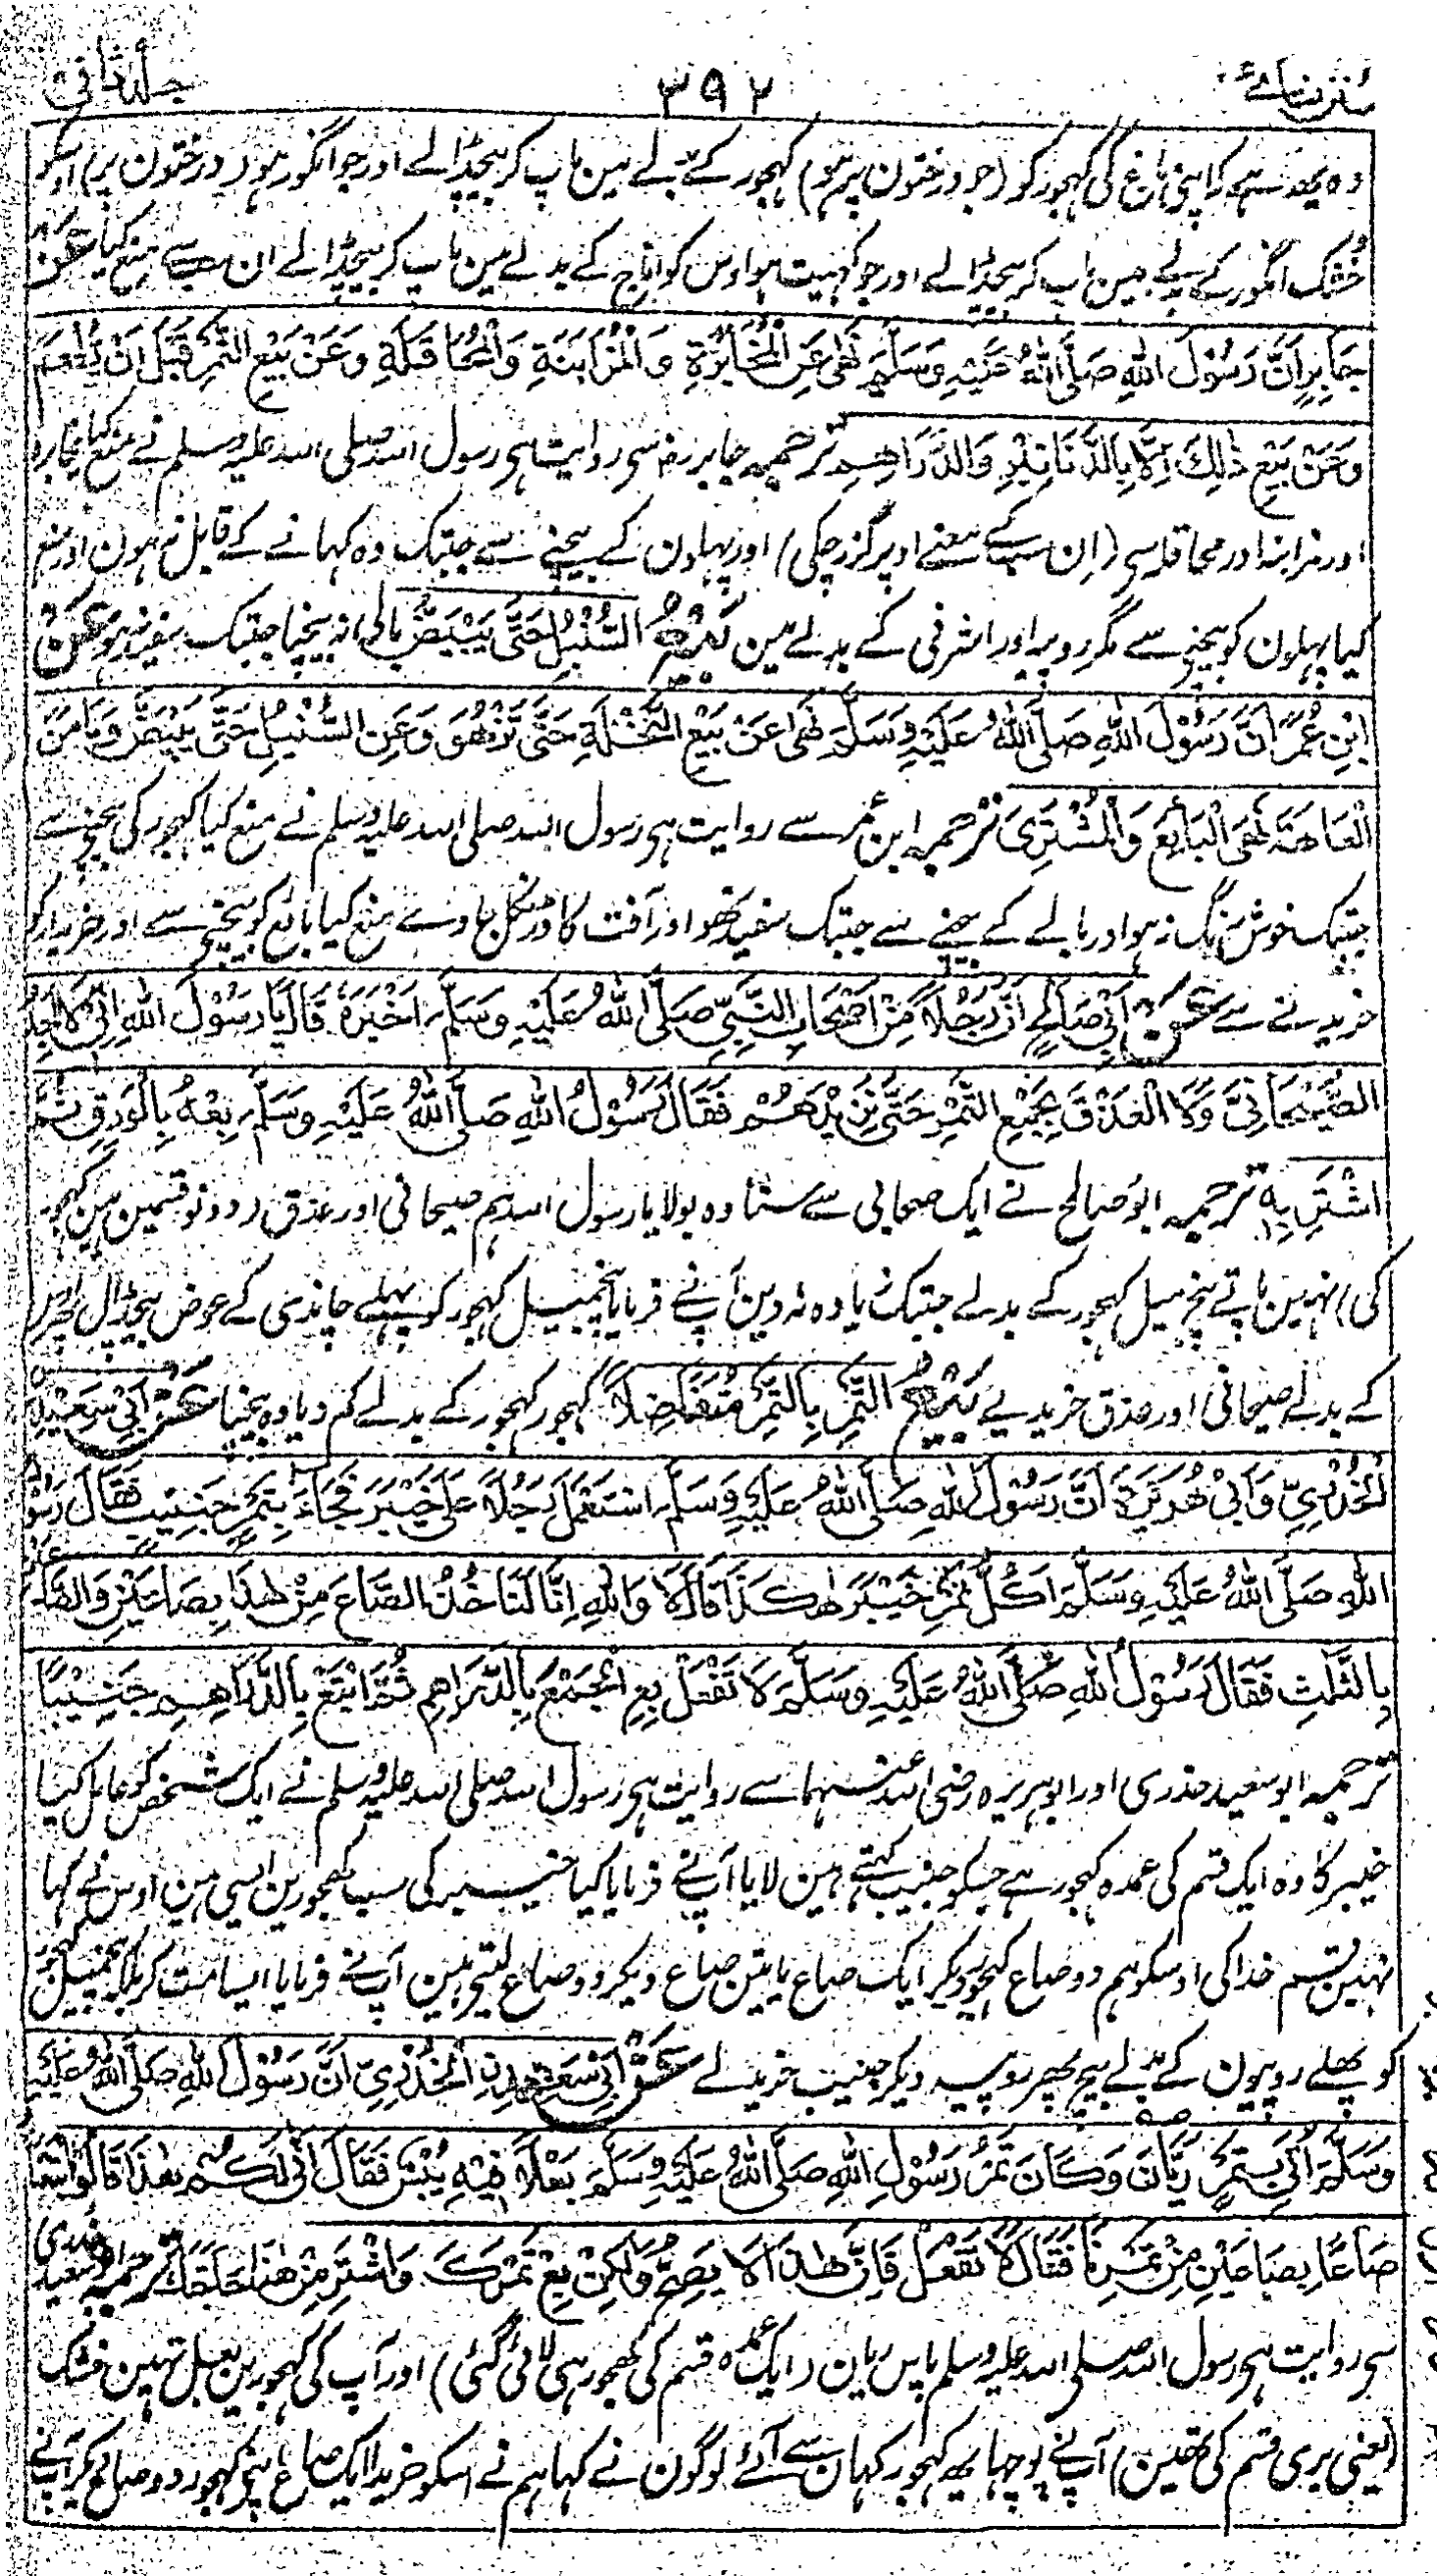 سنن نسائے ۳۹۲ جلد ثانی
وہ یہہ ہے کہ اپنی باغ کی کہجور کو (جو درختون پر ہو) کہجور کے بدلے مین ناپ کر بیچڈالے اور جو انگور ہو (درختون پر) اوسکو
خشک انگور کے بدلے مین ناپ کر بیچڈالے اور جو کہیت ہو اوس کو اناج کے بدلے مین ناپ کر بیچڈالے ان سب سے منع کیا عَنْ
جَابِرٍ اَنَّ رَسُوْلَ اللّٰهِ صَلَّى اللّٰهُ عَلَيْهِ وَسَلَّمَ نَهٰى عَنِ الْمُخَابَرَةِ وَالْمُزَابَنَةِ وَالْمُحَاقَلَةِ وَعَنْ بَيْعِ الثَّمَرِ قَبْلَ اَنْ يُطْعَمَ
وَعَنْ بَيْعِ ذٰلِكَ اِلَّا بِالدَّنَانِيْرِ وَالدَّرَاهِمِ ترجمہ جابر رض سے روایت ہی رسول اللہ صلی اللہ علیہ وسلم نے منع کیا مخابرہ
اور مزابنہ اور محاقلہ سی (ان سب کے معنے اوپر گزر چکی) اور پہلون کے بیچنے سے جبتک وہ کہانے کے قابل نہ ہون اور منع
کیا پہلون کو بیچنے سے مگر روپیہ اور اشرفی کے بدلے مین بَيْعُ السُّنْبُلِ حَتّٰى يَبْيَضَّ بالی نہ بیچنا جبتک سفید نہو عَنْ
ابْنِ عُمَرَ اَنَّ رَسُوْلَ اللّٰهِ صَلَّى اللّٰهُ عَلَيْهِ وَسَلَّمَ نَهٰى عَنْ بَيْعِ النَّخْلَةِ حَتّٰى تَزْهُوَ وَعَنِ السُّنْبُلِ حَتّٰى يَبْيَضَّ وَيَأْمَنَ
الْعَاهَةَ نَهَى الْبَائِعَ وَالْمُشْتَرِىَ ترجمہ ابن عمر سے روایت ہی رسول اللہ صلی اللہ علیہ وسلم نے منع کیا کہجور کی بیچنی سے
جبتک خوش رنگ نہ ہو اور بالے کے بیچنے سے جبتک سفید نہو اور آفت کا ڈر نکل جاوے منع کیا بائع کو بیچنی سے اور خریدار کو
خریدنے سے عَنْ اَبِيْ صَالِحٍ اَنَّ رَجُلًا مِّنْ اَصْحَابِ النَّبِيِّ صَلَّى اللّٰهُ عَلَيْهِ وَسَلَّمَ اَخْبَرَهٗ قَالَ يَا رَسُوْلَ اللّٰهِ اِنَّا لَا نَجِدُ
الصَّيْحَانِيَّ وَلَا الْعَذْقَ بِجَمْعِ التَّمْرِ حَتّٰى نَزِيْدَهُمْ فَقَالَ رَسُوْلُ اللّٰهِ صَلَّى اللّٰهُ عَلَيْهِ وَسَلَّمَ بِعْهُ بِالْوَرِقِ ثُمَّ
اشْتَرِ بِهٖ ترجمہ ابو صالح نے ایک صحابی سے سنا وہ بولا یا رسول اللہ ہم صیحانی اور عذق (دونو قسمین ہین کہجور
کی) نہین پاتے پنچ میل کہجور کے بدلے جبتک زیادہ نہ دین آپ نے فرمایا پنچمیل کہجور کو پہلے چاندی کے عوض بیچڈال پہر اوس
کے بدلے صیحانی اور عذق خریدلے بَيْعُ التَّمْرِ بِالتَّمْرِ مُتَفَاضِلًا کہجور کہجور کے بدلے کم و زیادہ بیچنا عَنْ اَبِيْ سَعِيْدٍ
الْخُدْرِيِّ وَاَبِيْ هُرَيْرَةَ اَنَّ رَسُوْلَ اللّٰهِ صَلَّى اللّٰهُ عَلَيْهِ وَسَلَّمَ اسْتَعْمَلَ رَجُلًا عَلٰى خَيْبَرَ فَجَاءَ بِتَمْرٍ جَنِيْبٍ فَقَالَ رَسُوْلُ
اللّٰهِ صَلَّى اللّٰهُ عَلَيْهِ وَسَلَّمَ اَكُلُّ تَمْرِ خَيْبَرَ هٰكَذَا قَالَ لَا وَاللّٰهِ اِنَّا لَنَأْخُذُ الصَّاعَ مِنْ هٰذَا بِصَاعَيْنِ وَالصَّاعَيْنِ
بِالثَّلٰثِ فَقَالَ رَسُوْلُ اللّٰهِ صَلَّى اللّٰهُ عَلَيْهِ وَسَلَّمَ لَا تَفْعَلْ بِعِ الْجَمْعَ بِالدَّرَاهِمِ ثُمَّ ابْتَعْ بِالدَّرَاهِمِ جَنِيْبًا
ترجمہ ابو سعید خدری اور ابوہریرہ رضی اللہ عنہما سے روایت ہی رسول اللہ صلی اللہ علیہ وسلم نے ایک شخص کو عامل کیا
خیبر کا وہ ایک قسم کی عمدہ کہجور ہے جسکو جنیب کہتے ہین لایا آپ نے فرمایا کیا خیبر کی سب کہجورین ایسی ہین اوس نے کہا
نہین قسم خدا کی اوسکو ہم دو صاع کہجور دیکر ایک صاع یا تین صاع دیکر دو صاع لیتی ہین آپ نے فرمایا ایسا مت کر بلکہ پنچمیل کہجور
کو پہلے روپیون کے بدلے بیچ پہر روپیہ دیکر جنیب خریدلے عَنْ اَبِيْ سَعِيْدٍ الْخُدْرِيِّ اَنَّ رَسُوْلَ اللّٰهِ صَلَّى اللّٰهُ عَلَيْهِ
وَسَلَّمَ اُتِيَ بِتَمْرٍ رَيَّانَ وَكَانَ تَمْرُ رَسُوْلِ اللّٰهِ صَلَّى اللّٰهُ عَلَيْهِ وَسَلَّمَ بَعْلًا فِيْهِ يُبْسٌ فَقَالَ اَنّٰى لَكُمْ هٰذَا قَالُوا ابْتَعْنَا
صَاعًا بِصَاعَيْنِ مِنْ تَمْرِنَا فَقَالَ لَا تَفْعَلْ فَاِنَّ هٰذَا لَا يَصِحُّ وَلٰكِنْ بِعْ تَمْرَكَ وَاشْتَرِ مِنْ هٰذَا حَاجَتَكَ ترجمہ ابو سعید خدری
سے روایت ہی رسول اللہ صلی اللہ علیہ وسلم پاس ریان (ایک عمدہ قسم کی کہجور ہی لائی گئی) اور آپ کی کہجورین بعل تہین خشک
(یعنی بری قسم کی تہین) آپ نے پوچہا یہ کہجور کہان سے آئے لوگون نے کہا ہم نے اسکو خریدا ایک صاع اپنی کہجور دو صاع دیکر آپ نے